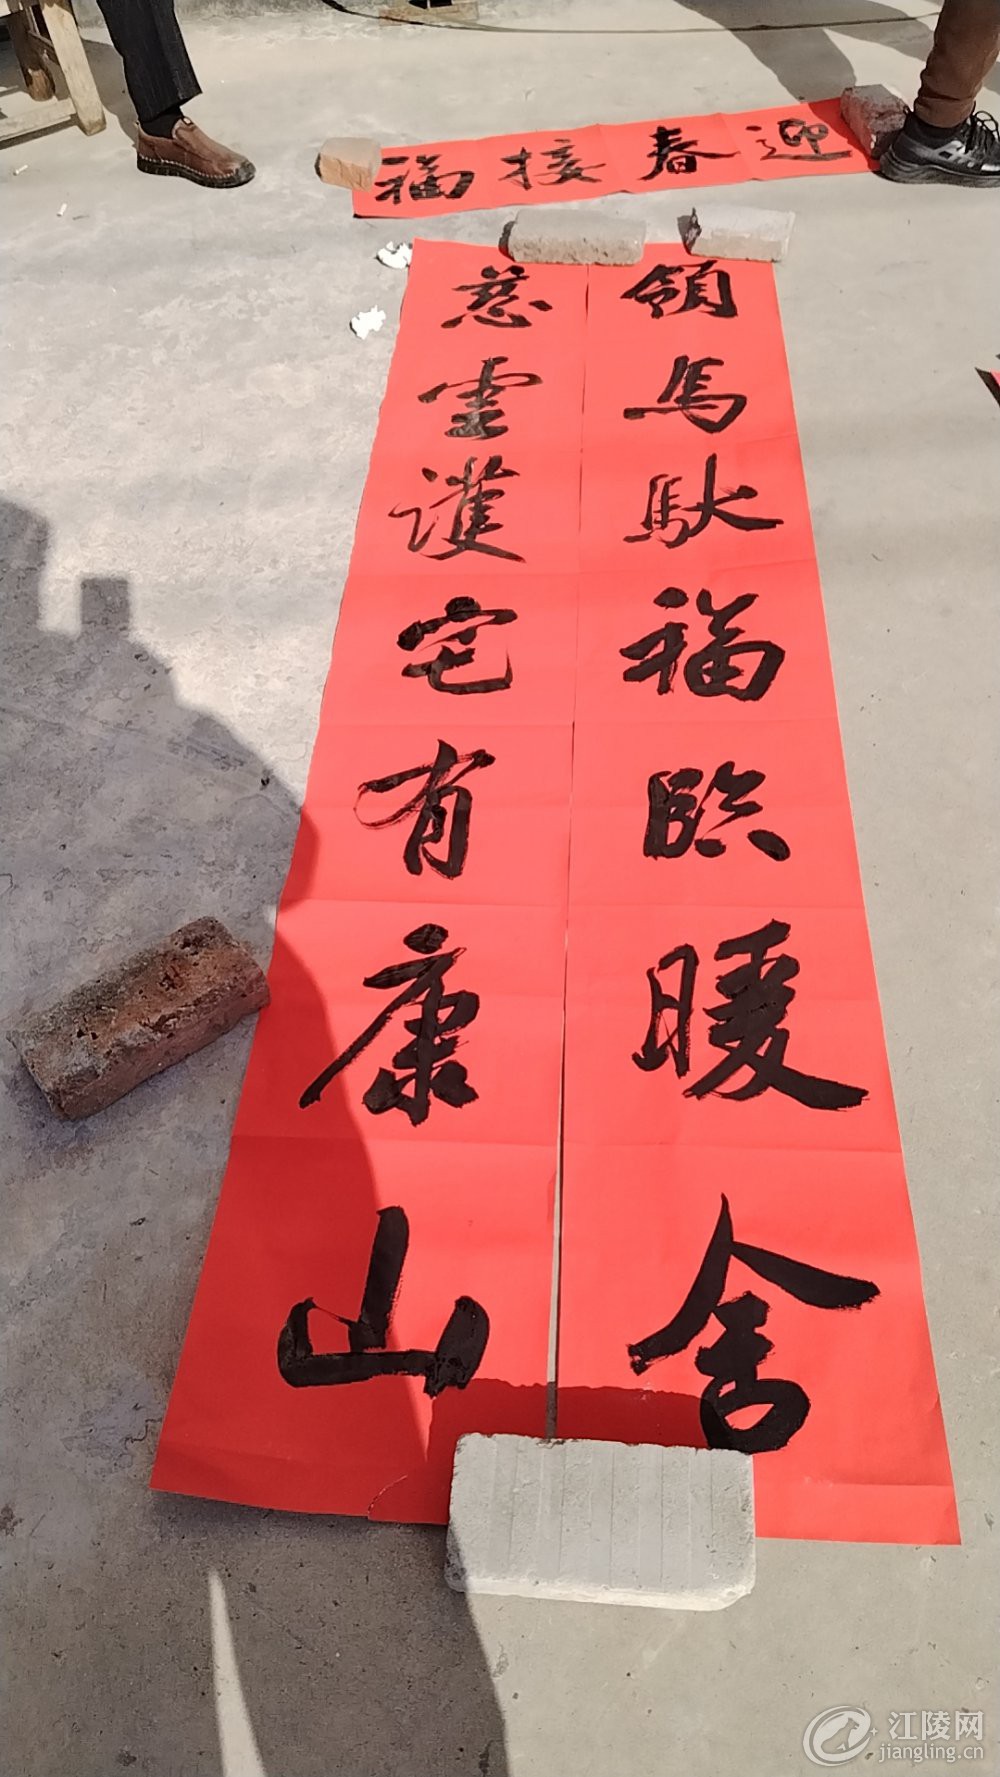 迎春接福
領馬馱福臨暖舍
慈雲護宅有康山
江陵网
jiangling.cn